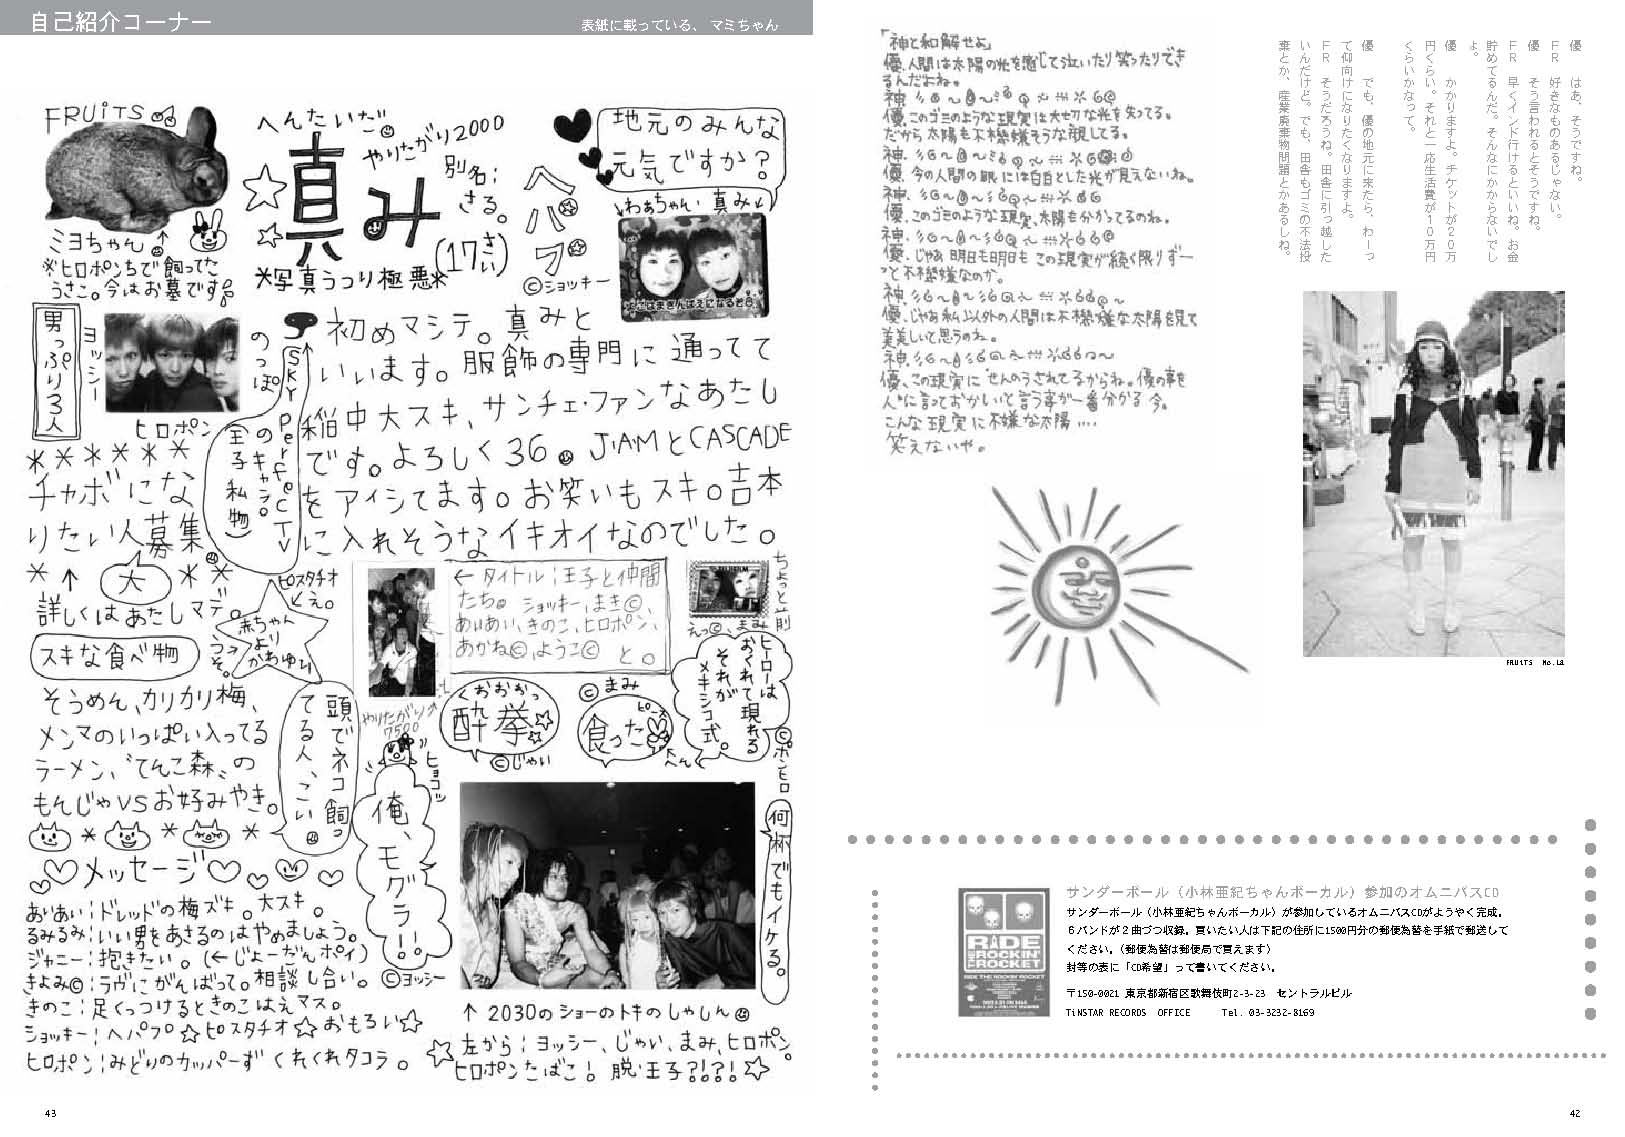 自己紹介コーナー
表紙に載っている、マミちゃん
FRUiTS
へんたいだ。
やりたがり2000
真み
別名：
さる。
(17さい)
ヘパプ
©ショッキー
*写真うつり極悪*
地元のみんな
元気ですか？
↓わぁちゃん 真み↓
ミヨちゃん↑
※ヒロポンちで飼ってた
うさこ。今はお墓です
男っぷり3人
ヨッシー
のっぽ
ヒロポン
SKY PerfecTV
のキャラ。
(王子私物)
初めマシテ。真みと
いいます。服飾の専門に通ってて
稲中大スキ、サンチェ・ファンなあたし
です。よろしく36。J.A.MとCASCADE
をアイシてます。お笑いもスキ。吉本
に入れそうなイキオイなのでした。
******
チャボにな
りたい人募集
*↑ 大 **
詳しくはあたしマデ。
ピスタチオ
くえ。
赤ちゃん
より
かわゆい
うっそ。
←タイトル：王子と仲間
たち。ショッキー、まき©、
あいあい、きのこ、ヒロポン、
あかね©、ようこ© と。
ちょっと前
えっ©、まみ
ヒーローは
おくれて現れる
それが
メキシコ式。
©ポンヒロ
スキな食べ物
そうめん、カリカリ梅、
メンマのいっぱい入ってる
ラーメン、〝てんこ森〟の
もんじゃVSお好みやき。
頭でネコ飼っ
てる人、こい。
やりたがり
7500
ヒョコッ
おおおっ
酔拳☆
©じゃい
©まみ
食った
ピース
へへん
俺、モグラ!!
©ヨッシー
何杯でもイケる。
♡メッセージ♡
あいあい：ドレッドの梅ズキ。大スキ。
るみるみ：いい男をあさるのはやめましょう。
ジャニー：抱きたい。(←じょーだんポイ)
きよみ©：ラヴにがんばって。相談し合い。
きのこ：足くっつけるときのこはえマス。
ショッキー：ヘパプ☆ピスタチオ☆おもろい☆
ヒロポン：みどりのカッパーず くれくれタコラ。
↑2030のショーのトキのしゃしん
☆左から：ヨッシー、じゃい、まみ、ヒロポン。
ヒロポンたばこ！ 脱・王子?!?!☆
43
「神と和解せよ」
優、人間は太陽の光を感じて泣いたり笑ったりでき
るんだよね。
神、
優、このゴミのような現実は大切な光を失ってる。
だから太陽も不機嫌そうな顔してる。
神、
優、今の人間の眼には白白とした光が見えないね。
神、
優、このゴミのような現実、太陽も分かってるのね。
神、
優、じゃあ明日も明日もこの現実が続く限りずー
っと不機嫌なのか。
神、
優、じゃあ私以外の人間は不機嫌な太陽を見て
美しいと思うのね。
神、
優、この現実にせんのうされてるからね。優の事を
人に言っておかしいと言う事が一番分かる今。
こんな現実に不機嫌な太陽‥‥
笑えないや。
優　はあ、そうですね。
FR　好きなものあるじゃない。
優　そう言われるとそうですね。
FR　早くインド行けるといいね。お金
貯めてるんだ。そんなにかからないでし
ょ。
優　かかりますよ。チケットが20万
円くらい。それと一応生活費が10万円
くらいかなって。
優　でも、優の地元に来たら、わーっ
て仰向けになりたくなりますよ。
FR　そうだろうね。田舎に引っ越した
いんだけど。でも、田舎もゴミの不法投
棄とか、産業廃棄物問題とかあるしね。
FRUiTS No.18
RIDE
THE
ROCKIN'
ROCKET
サンダーボール（小林亜紀ちゃんボーカル）参加のオムニバスCD
サンダーボール（小林亜紀ちゃんボーカル）が参加しているオムニバスCDがようやく完成。
６バンドが２曲づつ収録。買いたい人は下記の住所に1500円分の郵便為替を手紙で郵送して
ください。（郵便為替は郵便局で買えます）
封筒の表に「CD希望」って書いてください。
〒150-0021 東京都新宿区歌舞伎町2-3-23　セントラルビル
TiNSTAR RECORDS OFFICE　Tel. 03-3232-8169
42